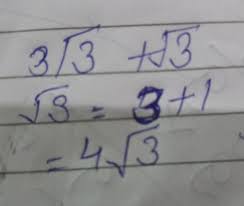 3√3 + √3
√3 = 3 + 1
= 4√3